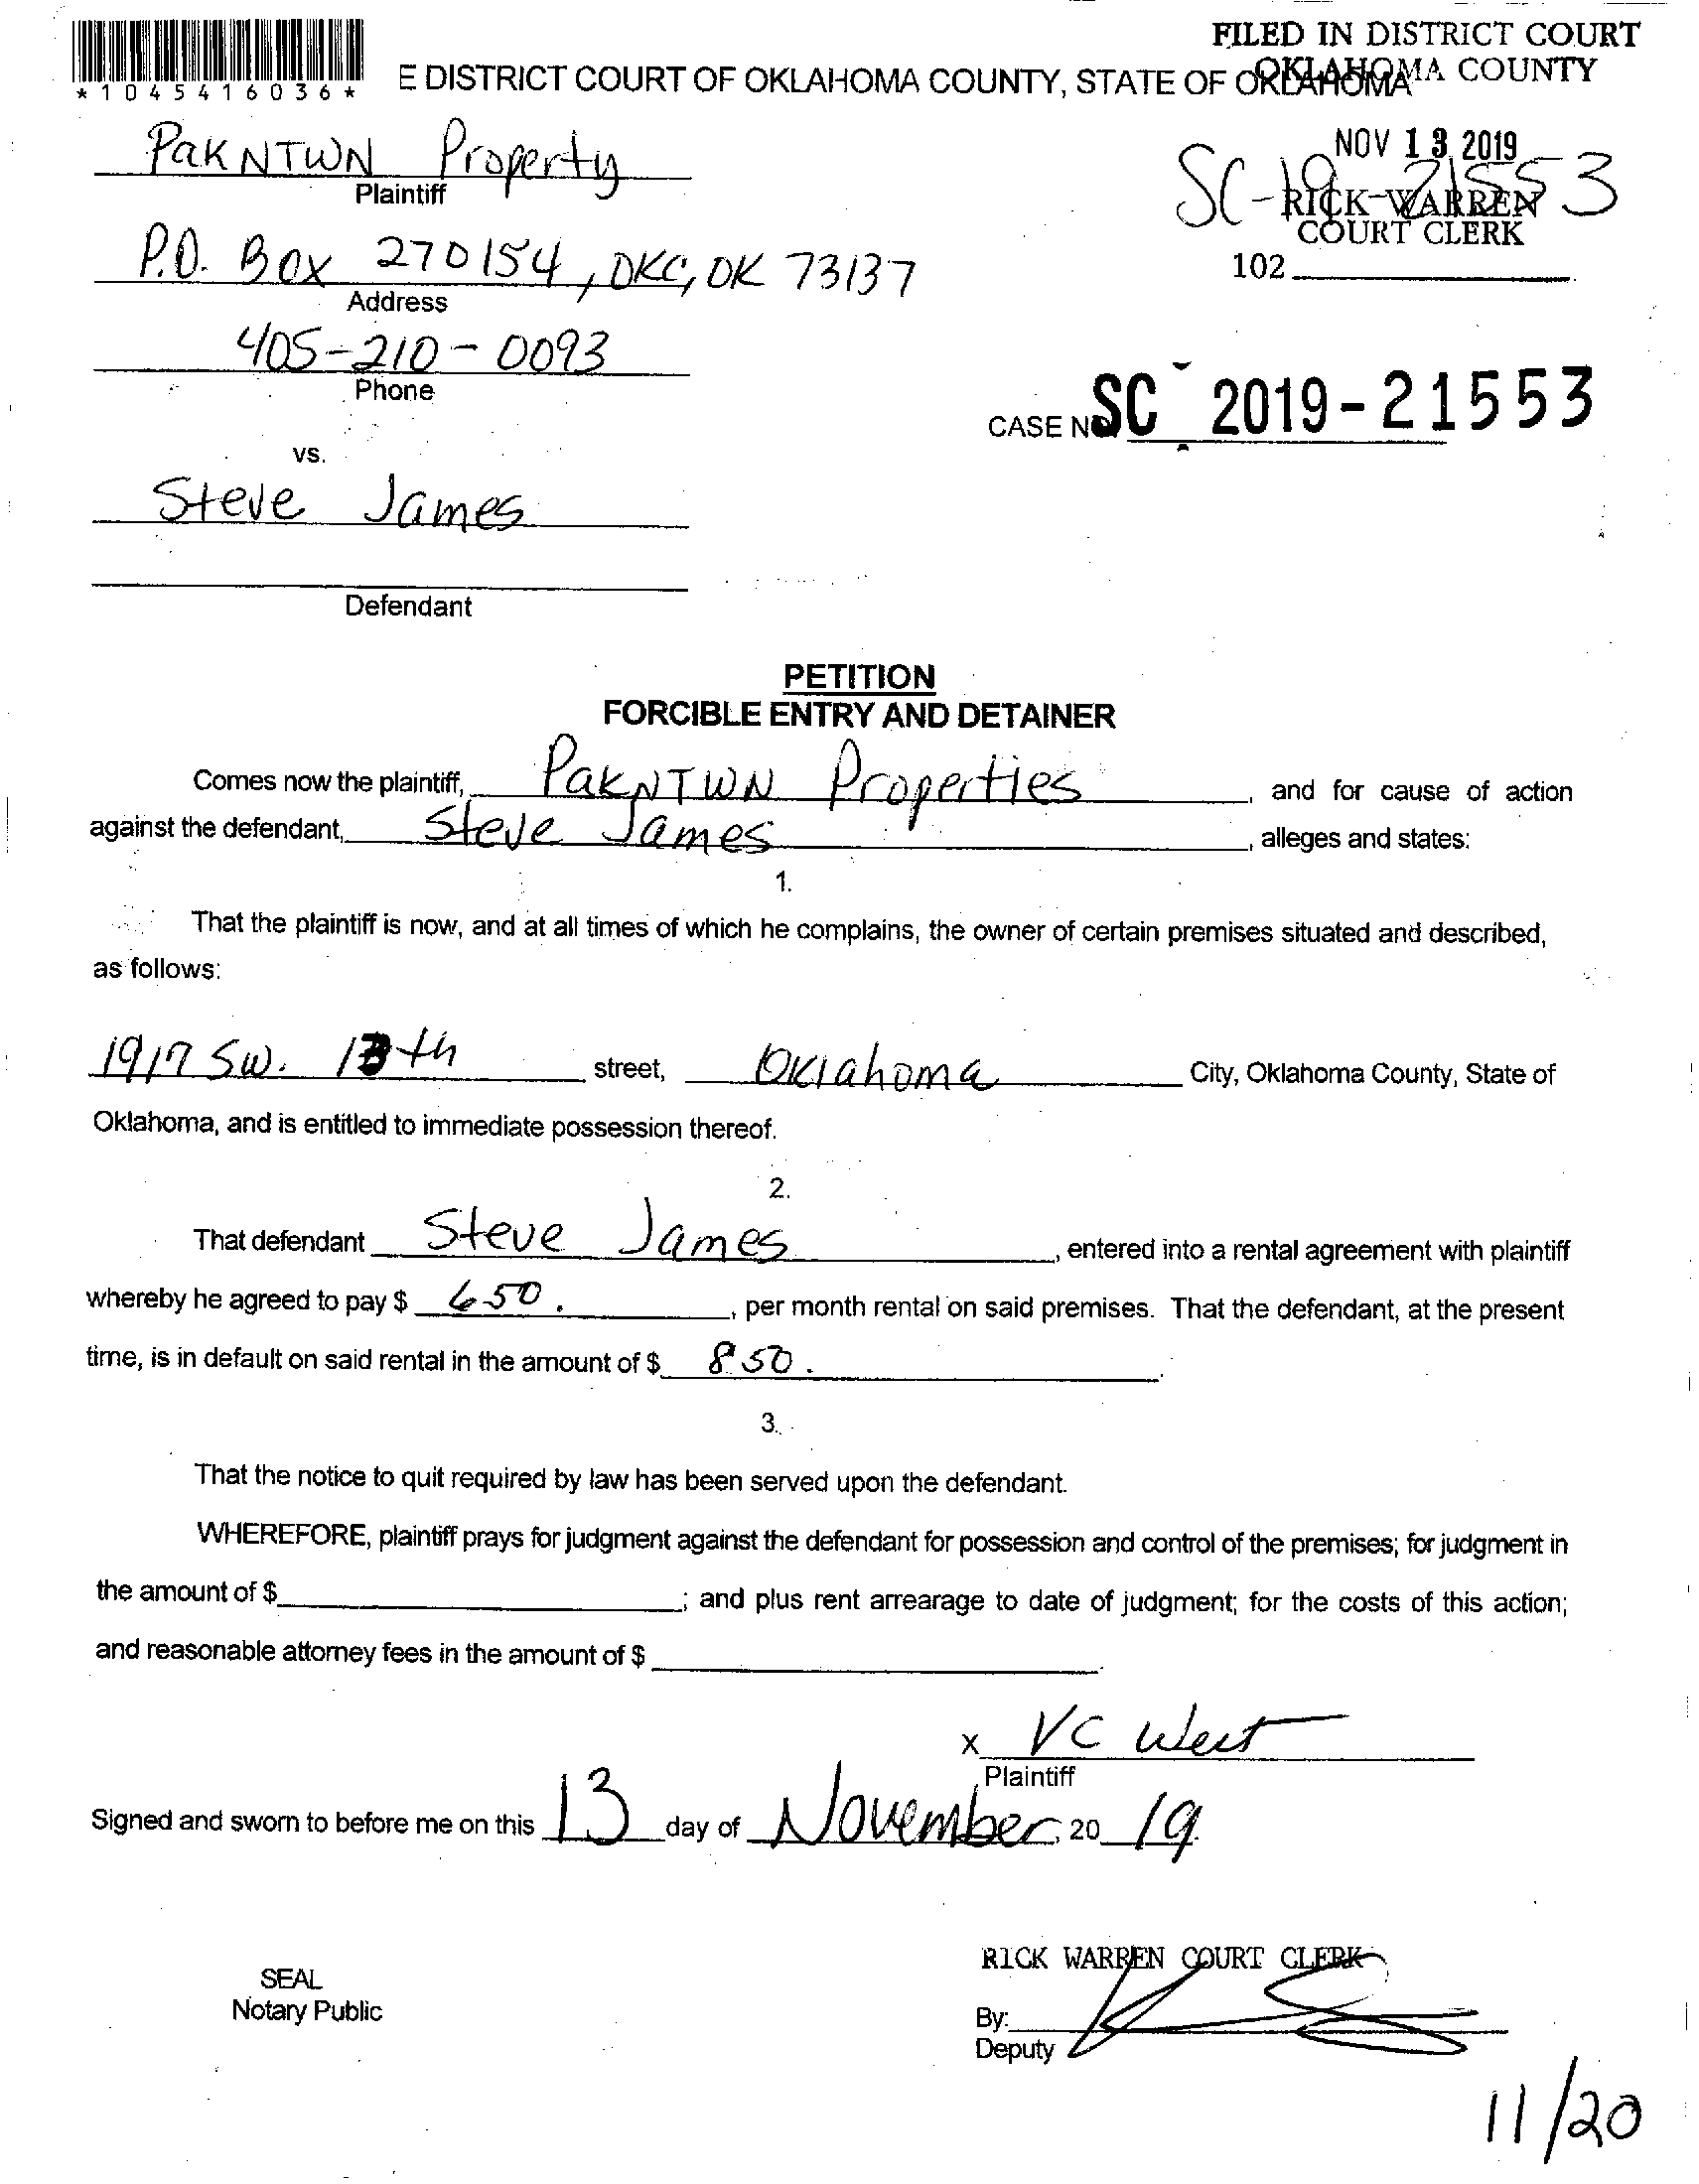 FILED IN DISTRICT COURT
OKLAHOMA COUNTY
*1045416036*
E DISTRICT COURT OF OKLAHOMA COUNTY, STATE OF OKLAHOMA
PakNTWN Property
Plaintiff
NOV 13 2019
SC-19-21553
RICK WARREN
COURT CLERK
P.O. Box 270154, OKC, OK 73137
Address
102
405-210-0093
Phone
CASE NO. SC - 2019-21553
vs.
Steve James
Defendant
PETITION
FORCIBLE ENTRY AND DETAINER
Comes now the plaintiff, PakNTWN Properties and for cause of action
against the defendant, Steve James, alleges and states:
1.
That the plaintiff is now, and at all times of which he complains, the owner of certain premises situated and described,
as follows:
1917 SW. street, Oklahoma City, Oklahoma County, State of
Oklahoma, and is entitled to immediate possession thereof.
2.
That defendant Steve James, entered into a rental agreement with plaintiff
whereby he agreed to pay $ 650., per month rental on said premises. That the defendant, at the present
time, is in default on said rental in the amount of $ 850.
3.
That the notice to quit required by law has been served upon the defendant.
WHEREFORE, plaintiff prays for judgment against the defendant for possession and control of the premises; for judgment in
the amount of $ ; and plus rent arrearage to date of judgment; for the costs of this action;
and reasonable attorney fees in the amount of $ .
x VC West
Plaintiff
Signed and sworn to before me on this 13 day of November, 20 19.
RICK WARREN COURT CLERK
SEAL
Notary Public
By:
Deputy
11/20